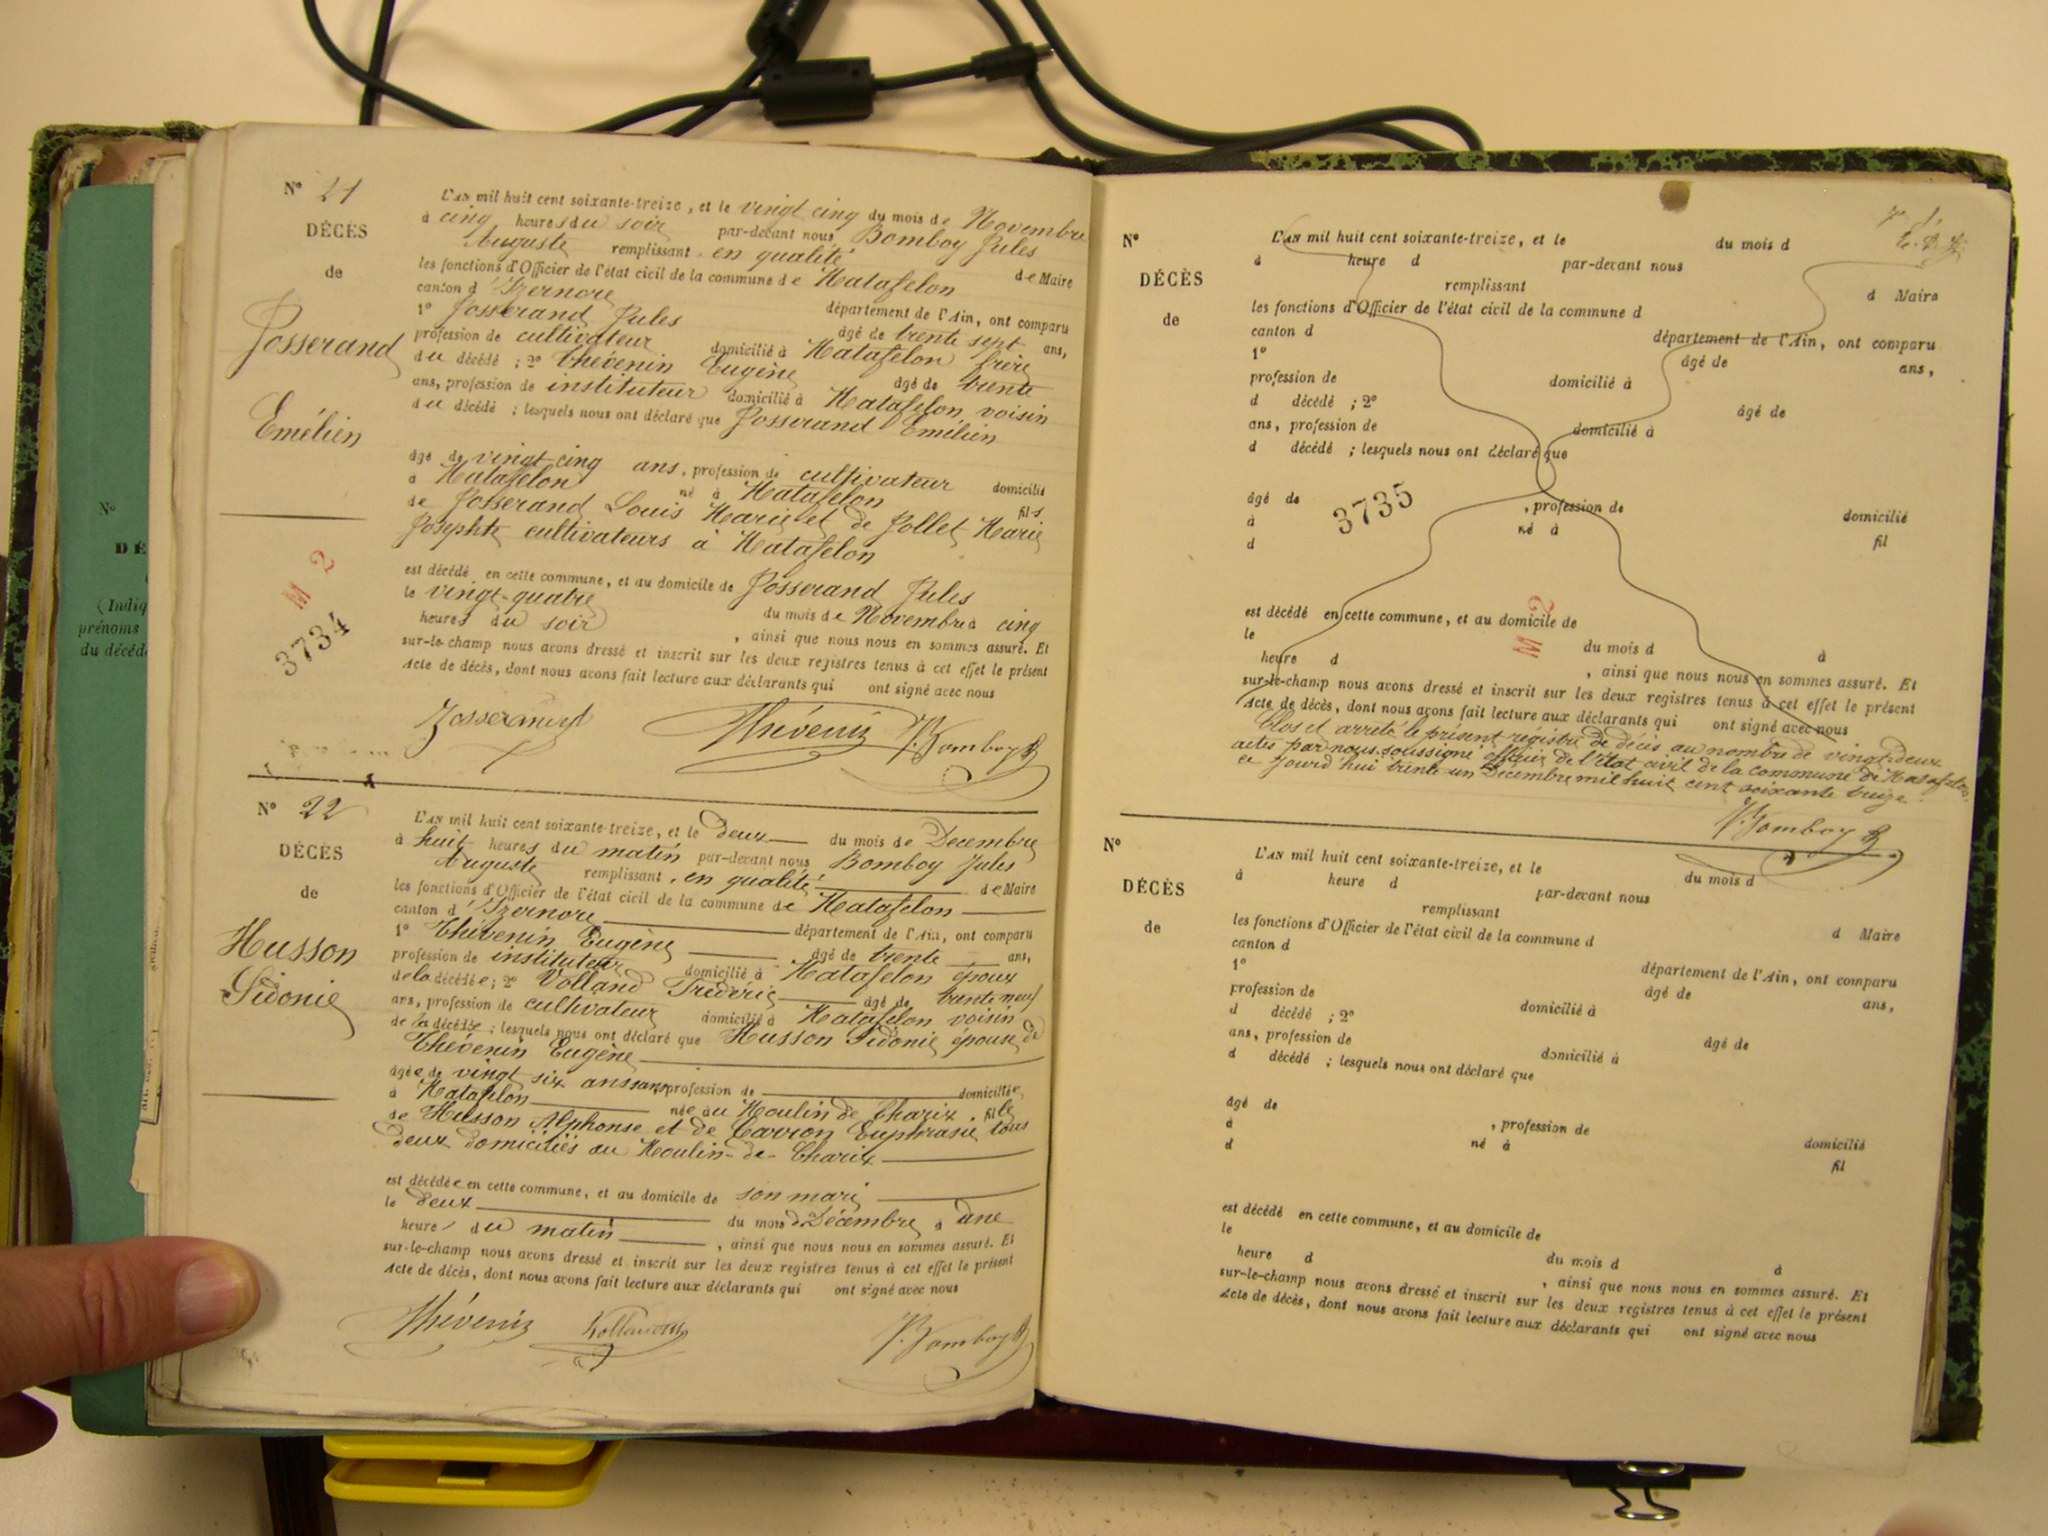 N° 21
DÉCÈS
de
Josserand
Emélien
L'AN mil huit cent soixante-treize, et le vingt cinq du mois de Novembre
à cinq heures du soir par-devant nous Bomboy Jules
Auguste remplissant en qualité de Maire
les fonctions d'Officier de l'état civil de la commune de Matafelon
canton d'Izernore département de l'Ain, ont comparu
1° Josserand Jules âgé de trente sept ans,
profession de cultivateur domicilié à Matafelon frère
du décédé ; 2° Thévenin Eugène âgé de trente
ans, profession de instituteur domicilié à Matafelon voisin
du décédé ; lesquels nous ont déclaré que Josserand Emélien
âgé de vingt-cinq ans, profession de cultivateur domicilié
à Matafelon né à Matafelon fils
de Josserand Louis Marie et de Jollet Marie
Josephte cultivateurs à Matafelon
est décédé en cette commune, et au domicile de Josserand Jules
le vingt-quatre du mois de Novembre à cinq
heures du soir , ainsi que nous nous en sommes assuré. Et
sur-le-champ nous avons dressé et inscrit sur les deux registres tenus à cet effet le présent
Acte de décès, dont nous avons fait lecture aux déclarants qui ont signé avec nous
M 2
3734
Josserand Thévenin J. Bomboy
N° 22
DÉCÈS
de
Husson
Sidonie
L'AN mil huit cent soixante-treize, et le deux du mois de Decembre
à huit heures du matin par-devant nous Bomboy Jules
Auguste remplissant en qualité de Maire
les fonctions d'Officier de l'état civil de la commune de Matafelon
canton d'Izernore département de l'Ain, ont comparu
1° Thévenin Eugène âgé de trente ans,
profession de instituteur domicilié à Matafelon époux
de la décédée ; 2° Volland Frédéric âgé de trente neuf
ans, profession de cultivateur domicilié à Matafelon voisin
de la décédée ; lesquels nous ont déclaré que Husson Sidonie épouse de
Thévenin Eugène
âgée de vingt six ans sans profession de domiciliée
à Matafelon née au Moulin de Charix fille
de Husson Alphonse et de Carrion Euphrasie tous
deux domiciliés au Moulin-de-Charix
est décédée en cette commune, et au domicile de son mari
le deux du mois de Décembre à une
heure du matin , ainsi que nous nous en sommes assuré. Et
sur-le-champ nous avons dressé et inscrit sur les deux registres tenus à cet effet le présent
Acte de décès, dont nous avons fait lecture aux déclarants qui ont signé avec nous
Thévenin Volland J. Bomboy
N°
DÉ
(Indiq
prénoms
du décéd
N°
DÉCÈS
de
L'AN mil huit cent soixante-treize, et le du mois d
à heure d par-devant nous
remplissant d Maire
les fonctions d'Officier de l'état civil de la commune d
canton d département de l'Ain, ont comparu
1° âgé de ans,
profession de domicilié à
d décédé ; 2° âgé de
ans, profession de domicilié à
d décédé ; lesquels nous ont déclaré que
âgé de , profession de domicilié
à né à fil
d
3735
est décédé en cette commune, et au domicile de
le du mois d à
heure d , ainsi que nous nous en sommes assuré. Et
sur-le-champ nous avons dressé et inscrit sur les deux registres tenus à cet effet le présent
Acte de décès, dont nous avons fait lecture aux déclarants qui ont signé avec nous
M 2
Clos et arrêté le présent registre de décès au nombre de vingt-deux
actes par nous soussigné officier de l'état civil de la commune de Matafelon
ce jourd'hui trente un Décembre mil huit cent soixante treize.
J. Bomboy
N°
DÉCÈS
de
L'AN mil huit cent soixante-treize, et le du mois d
à heure d par-devant nous
remplissant d Maire
les fonctions d'Officier de l'état civil de la commune d
canton d département de l'Ain, ont comparu
1° âgé de ans,
profession de domicilié à
d décédé ; 2° âgé de
ans, profession de domicilié à
d décédé ; lesquels nous ont déclaré que
âgé de , profession de domicilié
à né à fil
d
est décédé en cette commune, et au domicile de
le du mois d à
heure d , ainsi que nous nous en sommes assuré. Et
sur-le-champ nous avons dressé et inscrit sur les deux registres tenus à cet effet le présent
Acte de décès, dont nous avons fait lecture aux déclarants qui ont signé avec nous